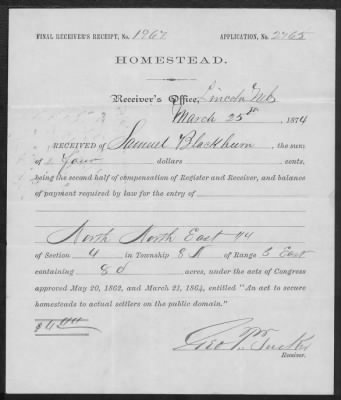 FINAL RECEIVER'S RECEIPT, No. 1967. APPLICATION, No. 2765
HOMESTEAD.
Receiver's Office, Lincoln Neb
March 25th, 1874
RECEIVED OF Samuel Blackburn, the sum
of Four dollars cents,
being the second half of compensation of Register and Receiver, and balance
of payment required by law for the entry of
North North East 1/4
of Section 4 in Township 8 N of Range 3 East
containing 80 acres, under the acts of Congress
approved May 20, 1862, and March 21, 1864, entitled "An act to secure
homesteads to actual settlers on the public domain."
$4.00
Geo P. Tucker
Receiver.